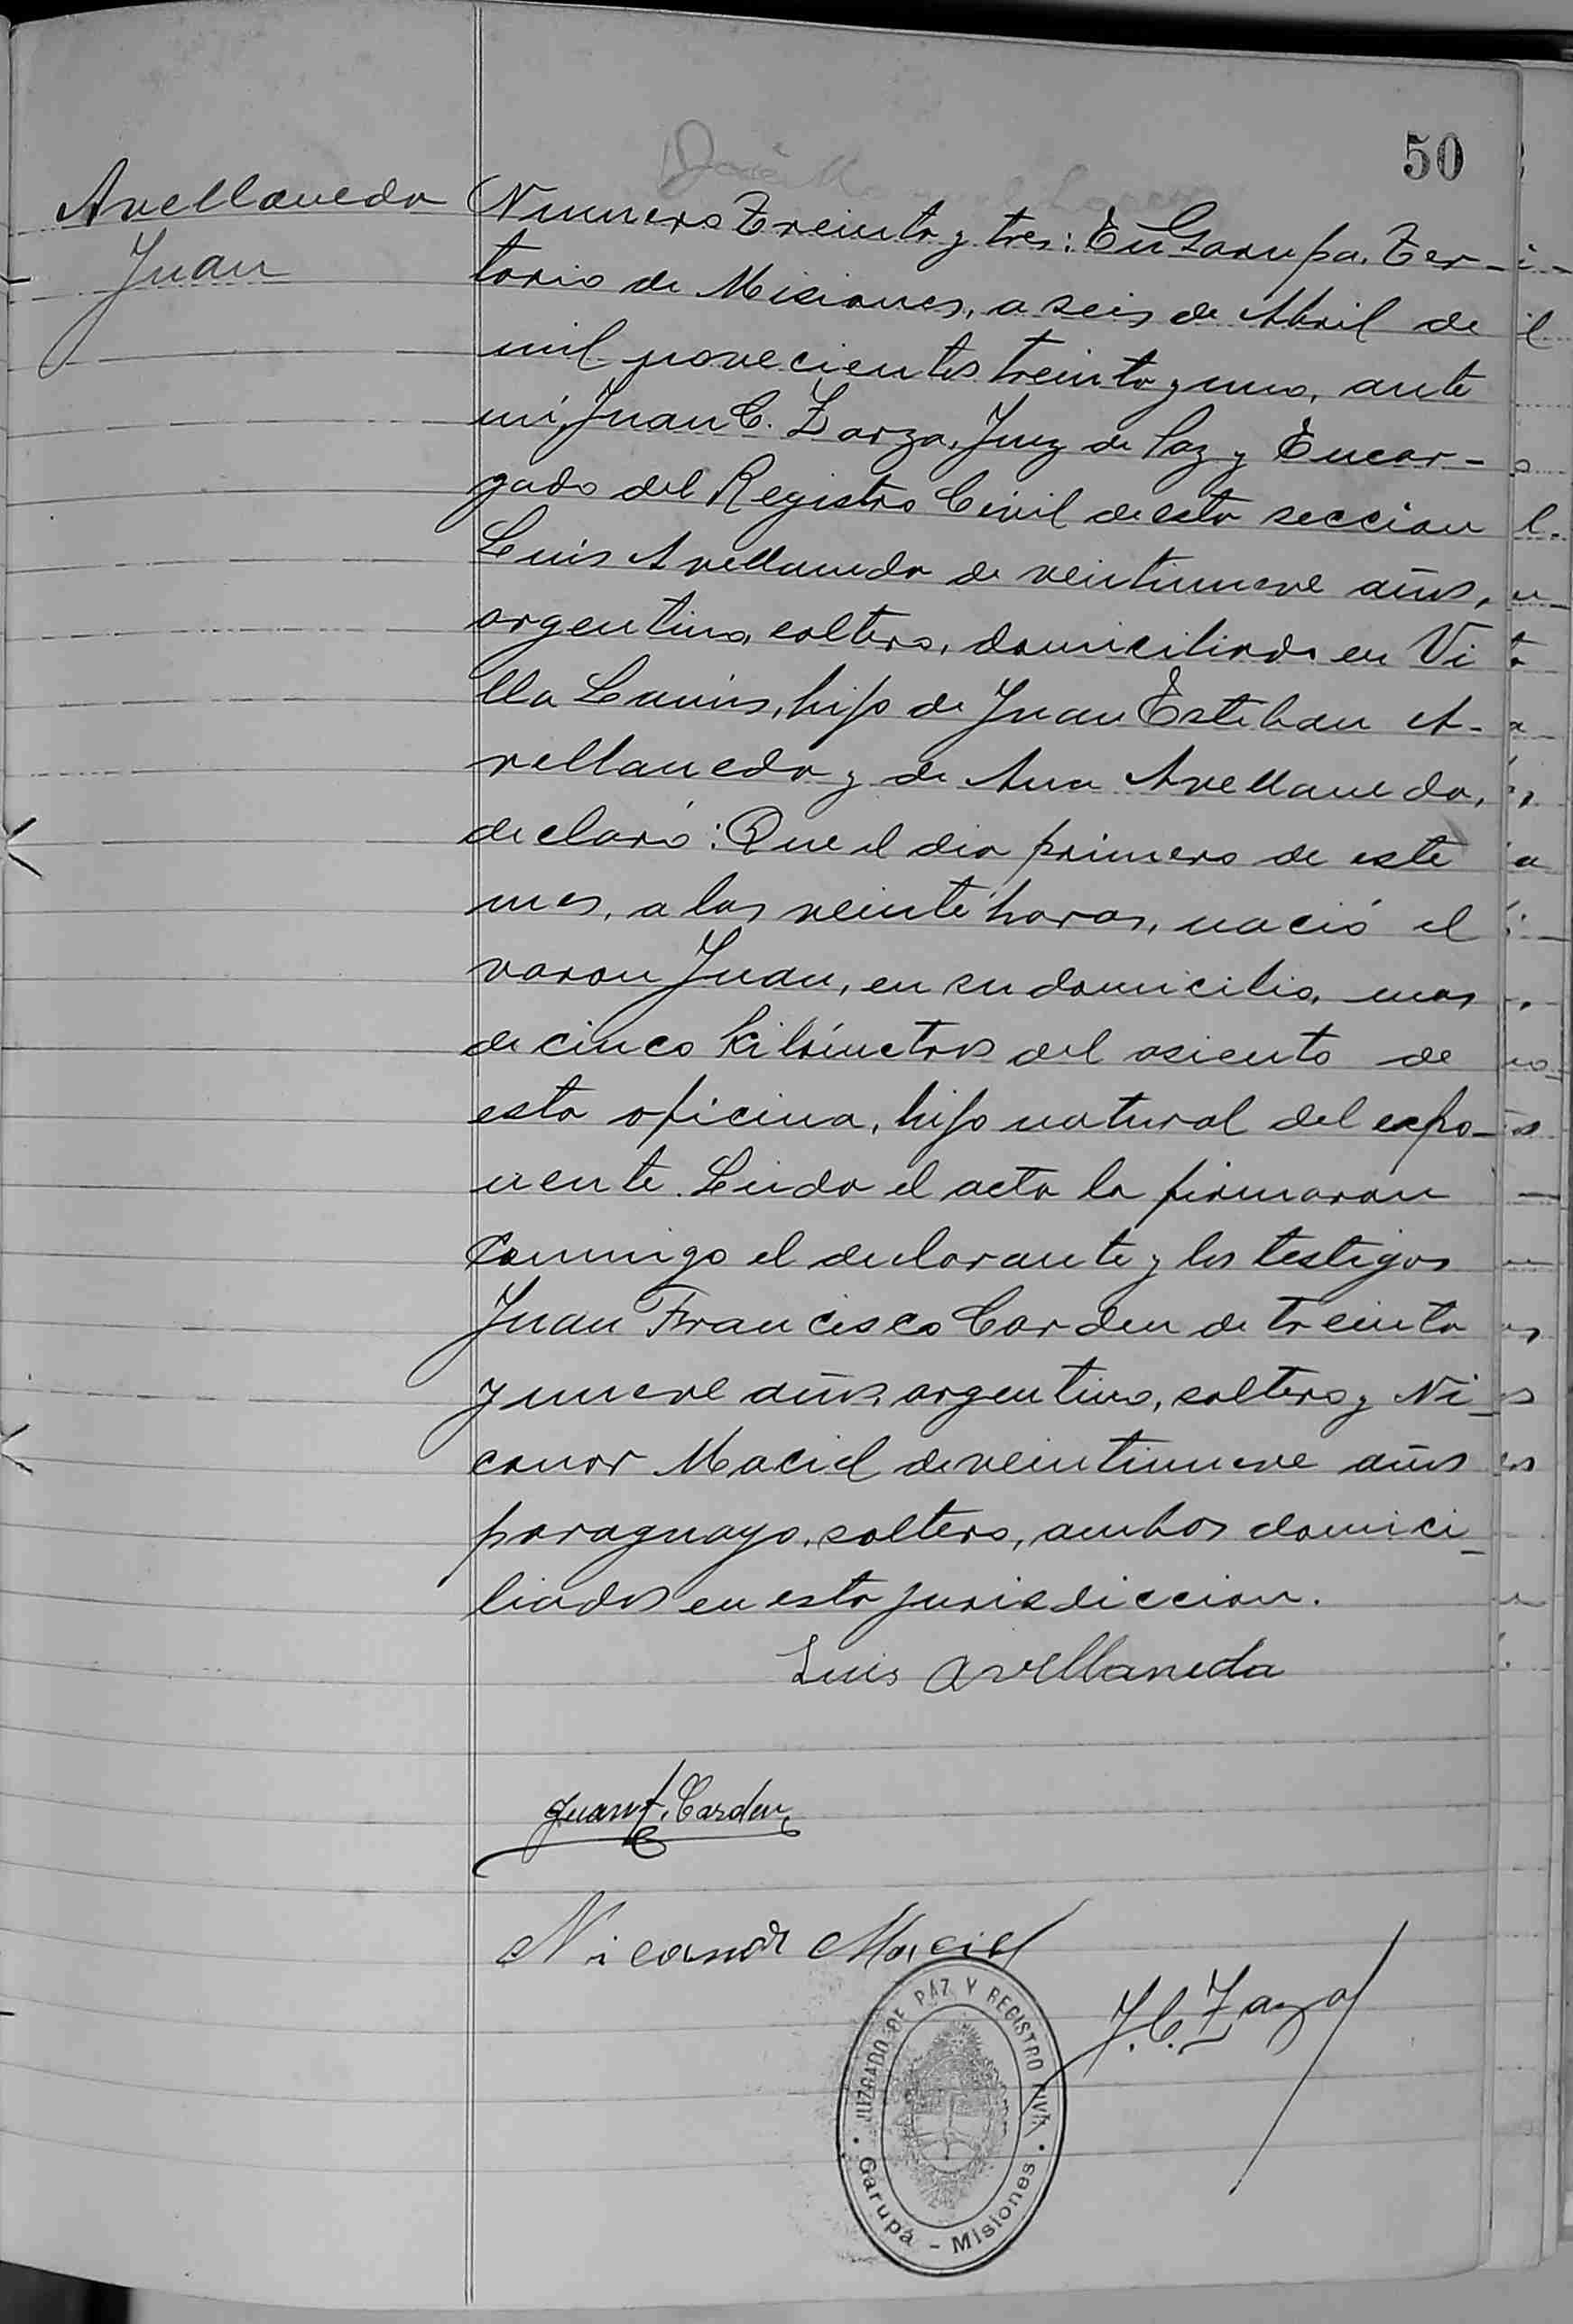 50
Avellaneda
Juan
Numero Treinta y tres: En Garupa, Terri-
torio de Misiones, a seis de Abril de
mil novecientos treinta y uno, ante
mi, Juan C. Zarza, Juez de Paz y Encar-
gado del Registro Civil de esta seccion
Luis Avellaneda de veintinueve años,
argentino, soltero, domiciliado en Vi
lla Lanús, hijo de Juan Esteban A-
vellaneda y de Ana Avellaneda,
declaró: Que el dia primero de este
mes, a las veinte horas, nació el
varon Juan, en su domicilio, mas
de cinco kilómetros del asiento de
esta oficina, hijo natural del expo-
nente. Leida el acta la firmaron
conmigo el declarante y los testigos
Juan Francisco Carden de treinta
y nueve años, argentino, soltero y Ni-
canor Maciel de veintinueve años
paraguayo, soltero, ambos domici-
liados en esta jurisdiccion.
Luis Avellaneda
Juan F. Carden
Nicanor Maciel
J. C. Zarza
JUZGADO DE PAZ Y REGISTRO CIVIL
Garupá - Misiones